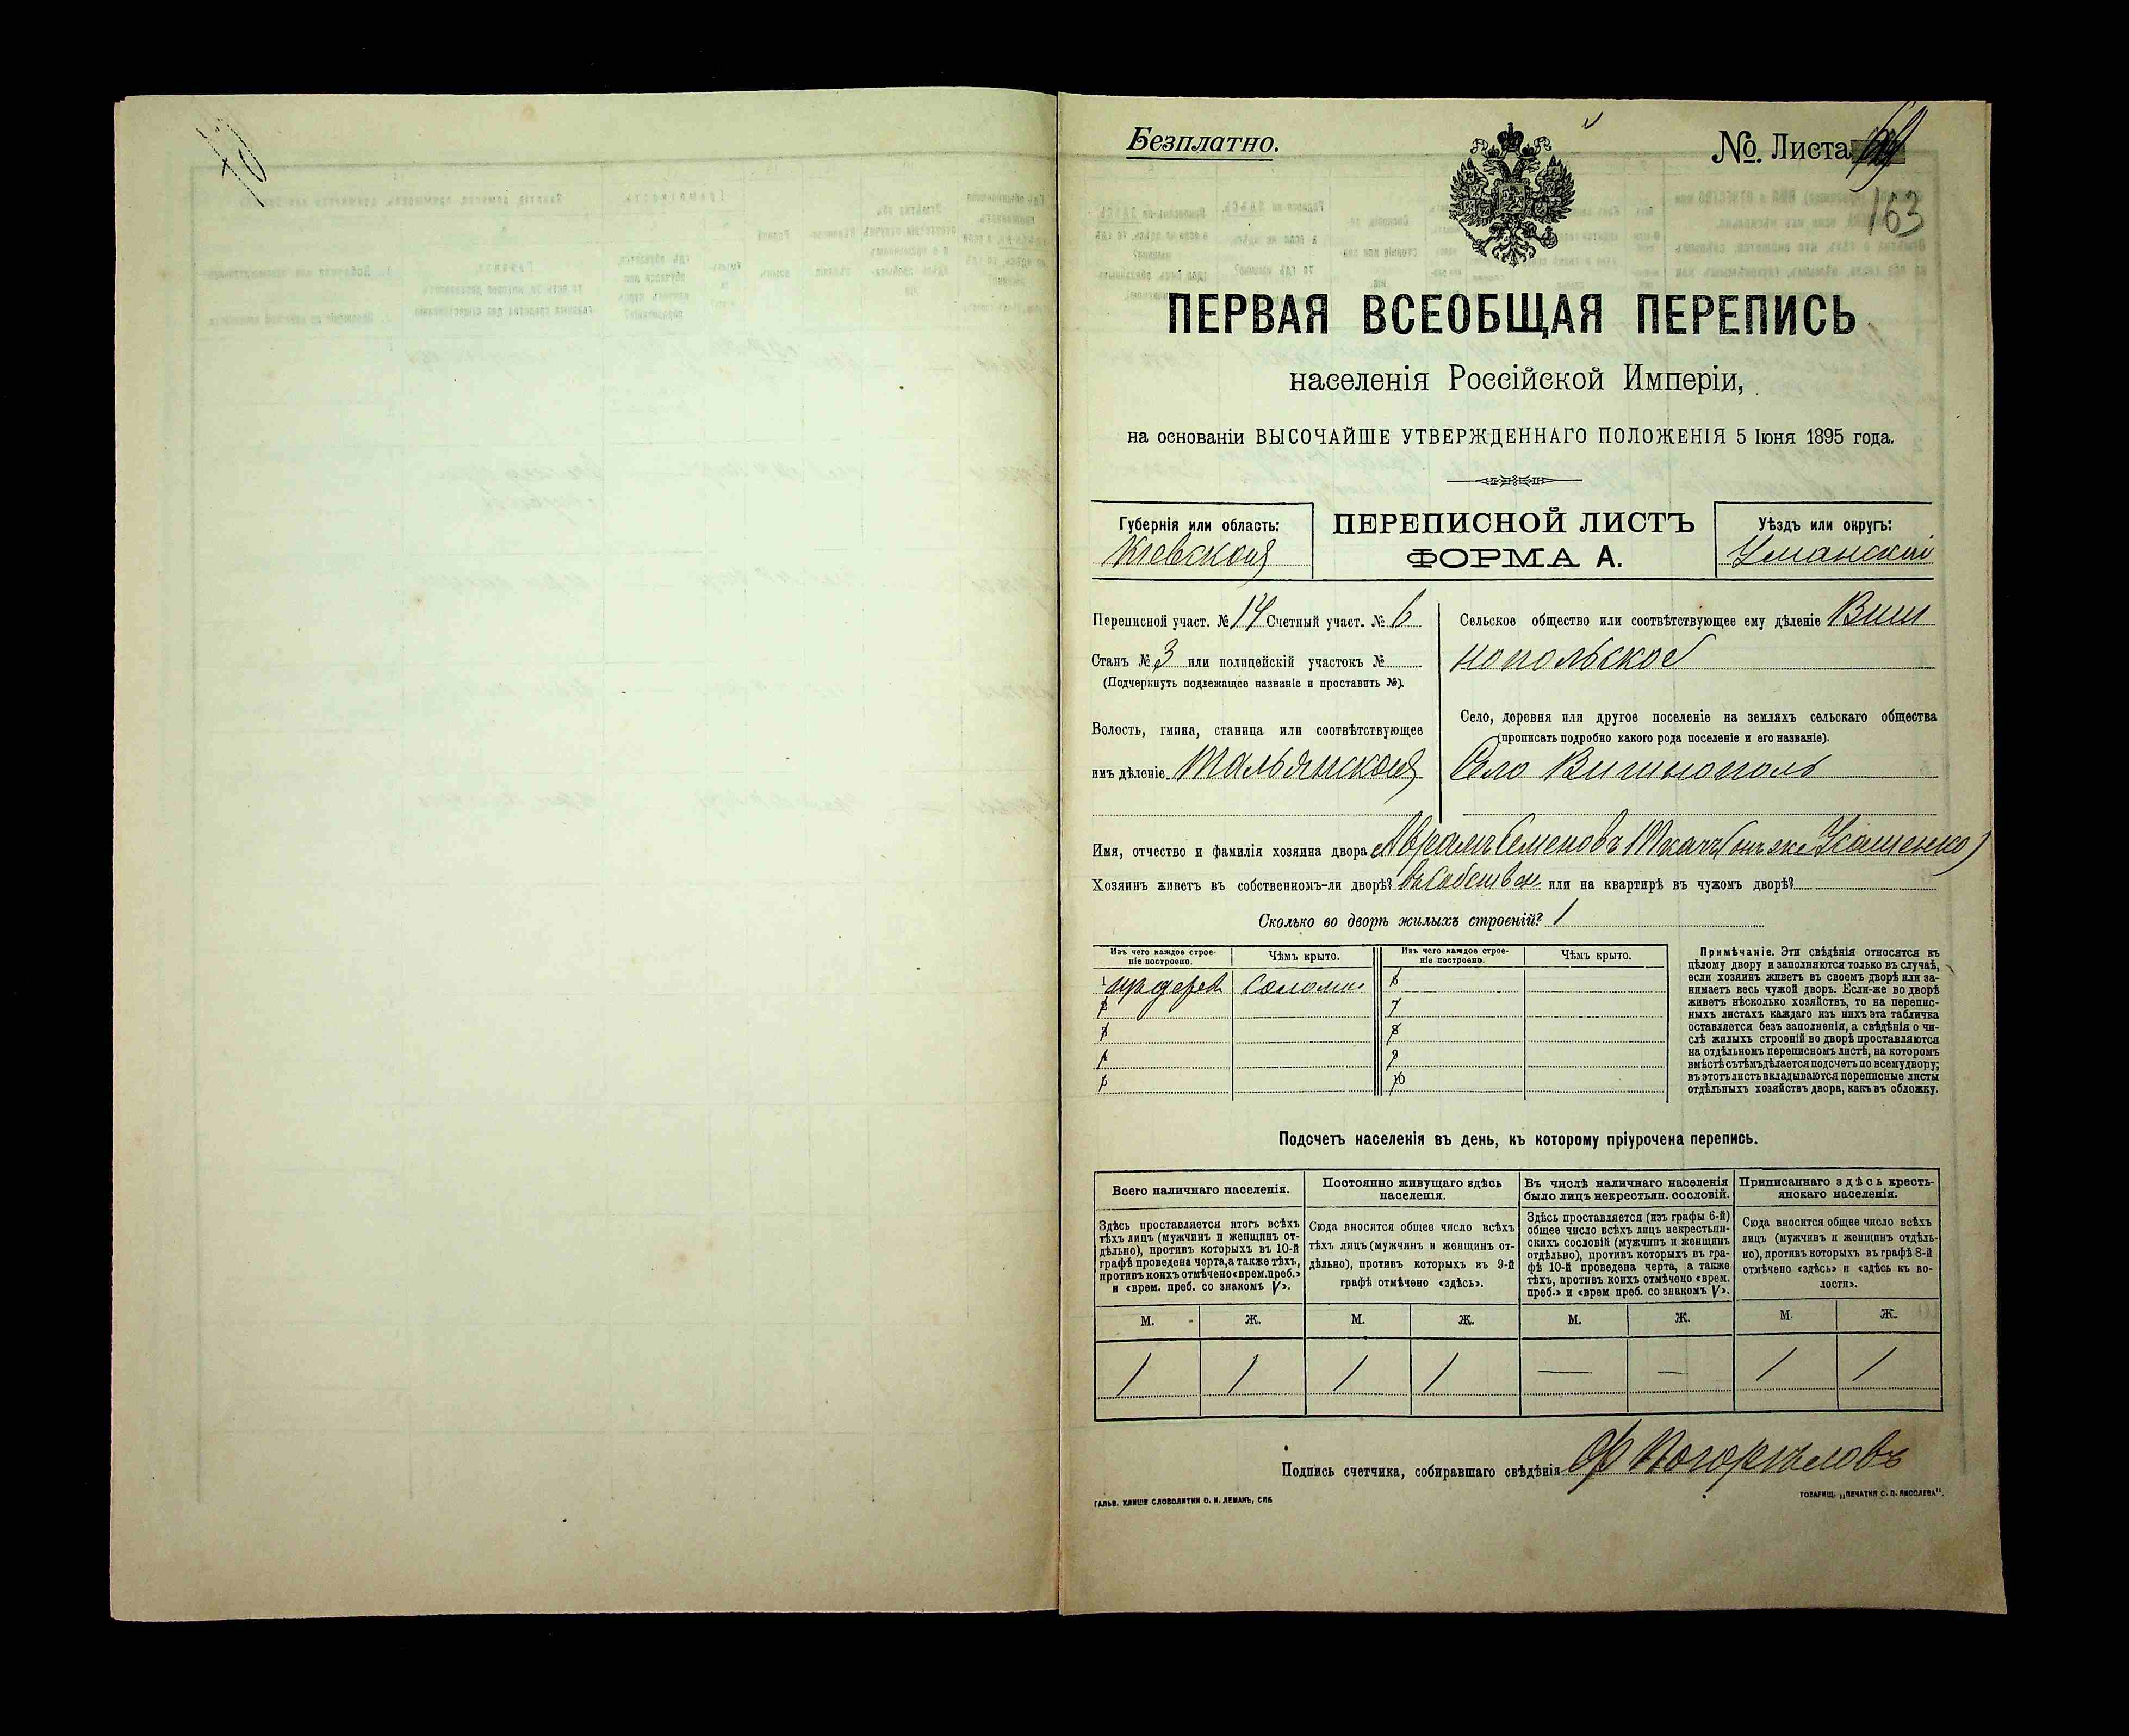 Безплатно.
№ Листа
163
ПЕРВАЯ ВСЕОБЩАЯ ПЕРЕПИСЬ
населенія Россійской Имперіи,
на основаніи ВЫСОЧАЙШЕ УТВЕРЖДЕННАГО ПОЛОЖЕНІЯ 5 Іюня 1895 года.
Губернія или область:
Кіевская
ПЕРЕПИСНОЙ ЛИСТЪ
ФОРМА А.
Уѣздъ или округъ:
Уманскій
Переписной участ. № 14 Счетный участ. № 6
Станъ № 3 или полицейскій участокъ №
(Подчеркнуть подлежащее названіе и проставить №).
Волость, гмина, станица или соотвѣтствующее
имъ дѣленіе Тальянская
Сельское общество или соотвѣтствующее ему дѣленіе Виш
нопольское
Село, деревня или другое поселеніе на земляхъ сельскаго общества
(прописать подробно какого рода поселеніе и его названіе).
Село Вишнополь
Имя, отчество и фамилія хозяина двора Аврамъ Семеновъ Ткачъ (онъ же Усашенко)
Хозяинъ живетъ въ собственномъ-ли дворѣ? въ собствен. или на квартирѣ въ чужомъ дворѣ?
Сколько во дворѣ жилыхъ строеній? 1
Изъ чего каждое строе-
ніе построено.
Чѣмъ крыто.
Изъ чего каждое строе-
ніе построено.
Чѣмъ крыто.
1 изъ дерев. соломы 6
2 7
3 8
4 9
5 10
Примѣчаніе. Эти свѣдѣнія относятся къ
цѣлому двору и заполняются только въ случаѣ,
если хозяинъ живетъ въ своемъ дворѣ или за-
нимаетъ весь чужой дворъ. Если-же во дворѣ
живетъ нѣсколько хозяйствъ, то на перепис-
ныхъ листахъ каждаго изъ нихъ эта табличка
оставляется безъ заполненія, а свѣдѣнія о чи-
слѣ жилыхъ строеній во дворѣ проставляются
на отдѣльномъ переписномъ листѣ, на которомъ
вмѣстѣ съ тѣмъ дѣлается подсчетъ по всему двору;
въ этотъ листъ вкладываются переписные листы
отдѣльныхъ хозяйствъ двора, какъ въ обложку.
Подсчетъ населенія въ день, къ которому пріурочена перепись.
Всего наличнаго населенія.
Здѣсь проставляется итогъ всѣхъ
тѣхъ лицъ (мужчинъ и женщинъ от-
дѣльно), противъ которыхъ въ 10-й
графѣ проведена черта, а также тѣхъ,
противъ коихъ отмѣчено «врем. преб.»
и «врем. преб. со знакомъ V».
Постоянно живущаго здѣсь
населенія.
Сюда вносится общее число всѣхъ
тѣхъ лицъ (мужчинъ и женщинъ от-
дѣльно), противъ которыхъ въ 9-й
графѣ отмѣчено «здѣсь».
Въ числѣ наличнаго населенія
было лицъ некрестьян. сословій.
Здѣсь проставляется (изъ графы 6-й)
общее число всѣхъ лицъ некрестьян-
скихъ сословій (мужчинъ и женщинъ
отдѣльно), противъ которыхъ въ гра-
фѣ 10-й проведена черта, а также
тѣхъ, противъ коихъ отмѣчено «врем.
преб.» и «врем преб. со знакомъ V».
Приписаннаго здѣсь кресть-
янскаго населенія.
Сюда вносится общее число всѣхъ
лицъ (мужчинъ и женщинъ отдѣль-
но), противъ которыхъ въ графѣ 8-й
отмѣчено «здѣсь» и «здѣсь къ во-
лости».
М. Ж. М. Ж. М. Ж. М. Ж.
1 1 1 1 — — 1 1
Подпись счетчика, собиравшаго свѣдѣнія Ф Погорѣловъ
ГАЛЬВ. КЛИШЕ СЛОВОЛИТНИ О. И. ЛЕМАНЪ, СПБ
ТОВАРИЩ. „ПЕЧАТНЯ С. П. ЯКОВЛЕВА".